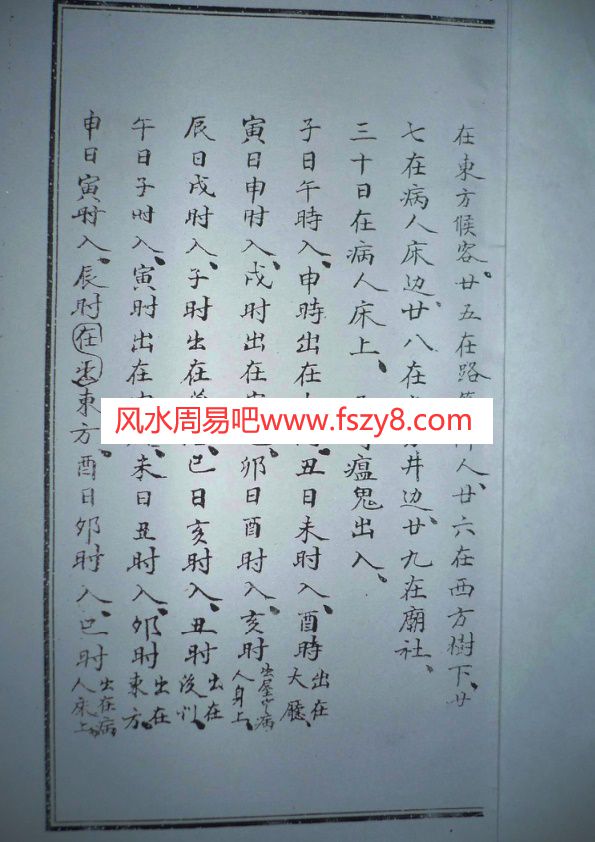 在東方候客、廿五在路人、廿六在西方樹下、廿
七在病人床边、廿八在井边、廿九在廟社、
三十日在病人床上、瘟鬼出入、
子日午時入、申時出在丑日未时入、酉時出在大廳、
寅日申时入、戌时出在卯日酉时入、亥时出屋中病人身上、
辰日戌时入、子时出在巳日亥时入、丑时出在後
午日子时入、寅时出在未日丑时入、卯时出在東方、
申日寅时入、辰时在出東方、酉日卯时入、巳时出在病人床上、
风水周易吧www.fszy8.com